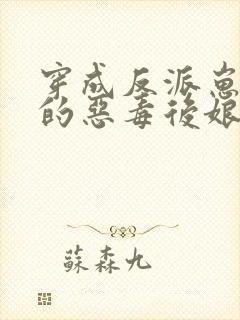 穿成反派崽
的惡毒後娘
蘇森九